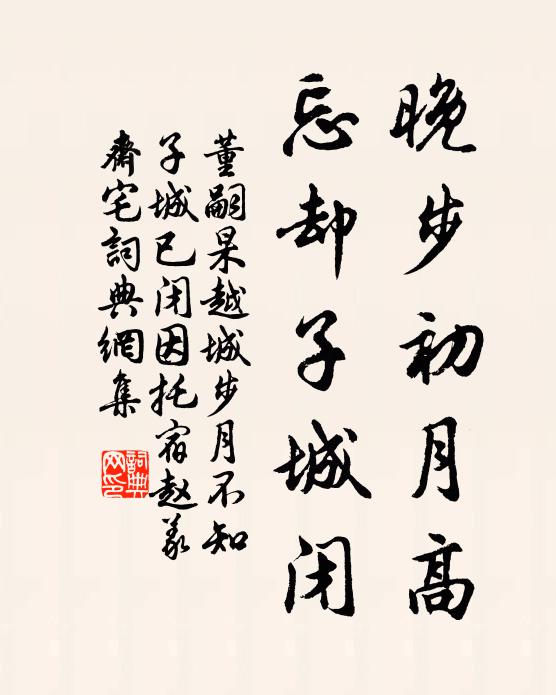 晚步初月高
忘却子城闭
董嗣杲越城步月不知
子城已闭因托宿赵义
斋宅詞典網集
詞典
网印